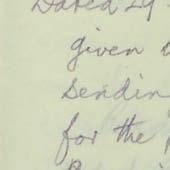 Dated 29
given
Sendin
for the